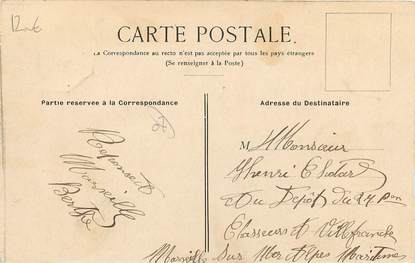 12ae
CARTE POSTALE.
La Correspondance au recto n'est pas acceptée par tous les pays étrangers
(Se renseigner à la Poste)
Partie réservée à la Correspondance
Marseille
Berthe
Adresse du Destinataire
M Monsieur
Henri
Au Dépôt du 24 Bon
Chasseurs à Villefranche
Sur Mer Alpes Maritimes